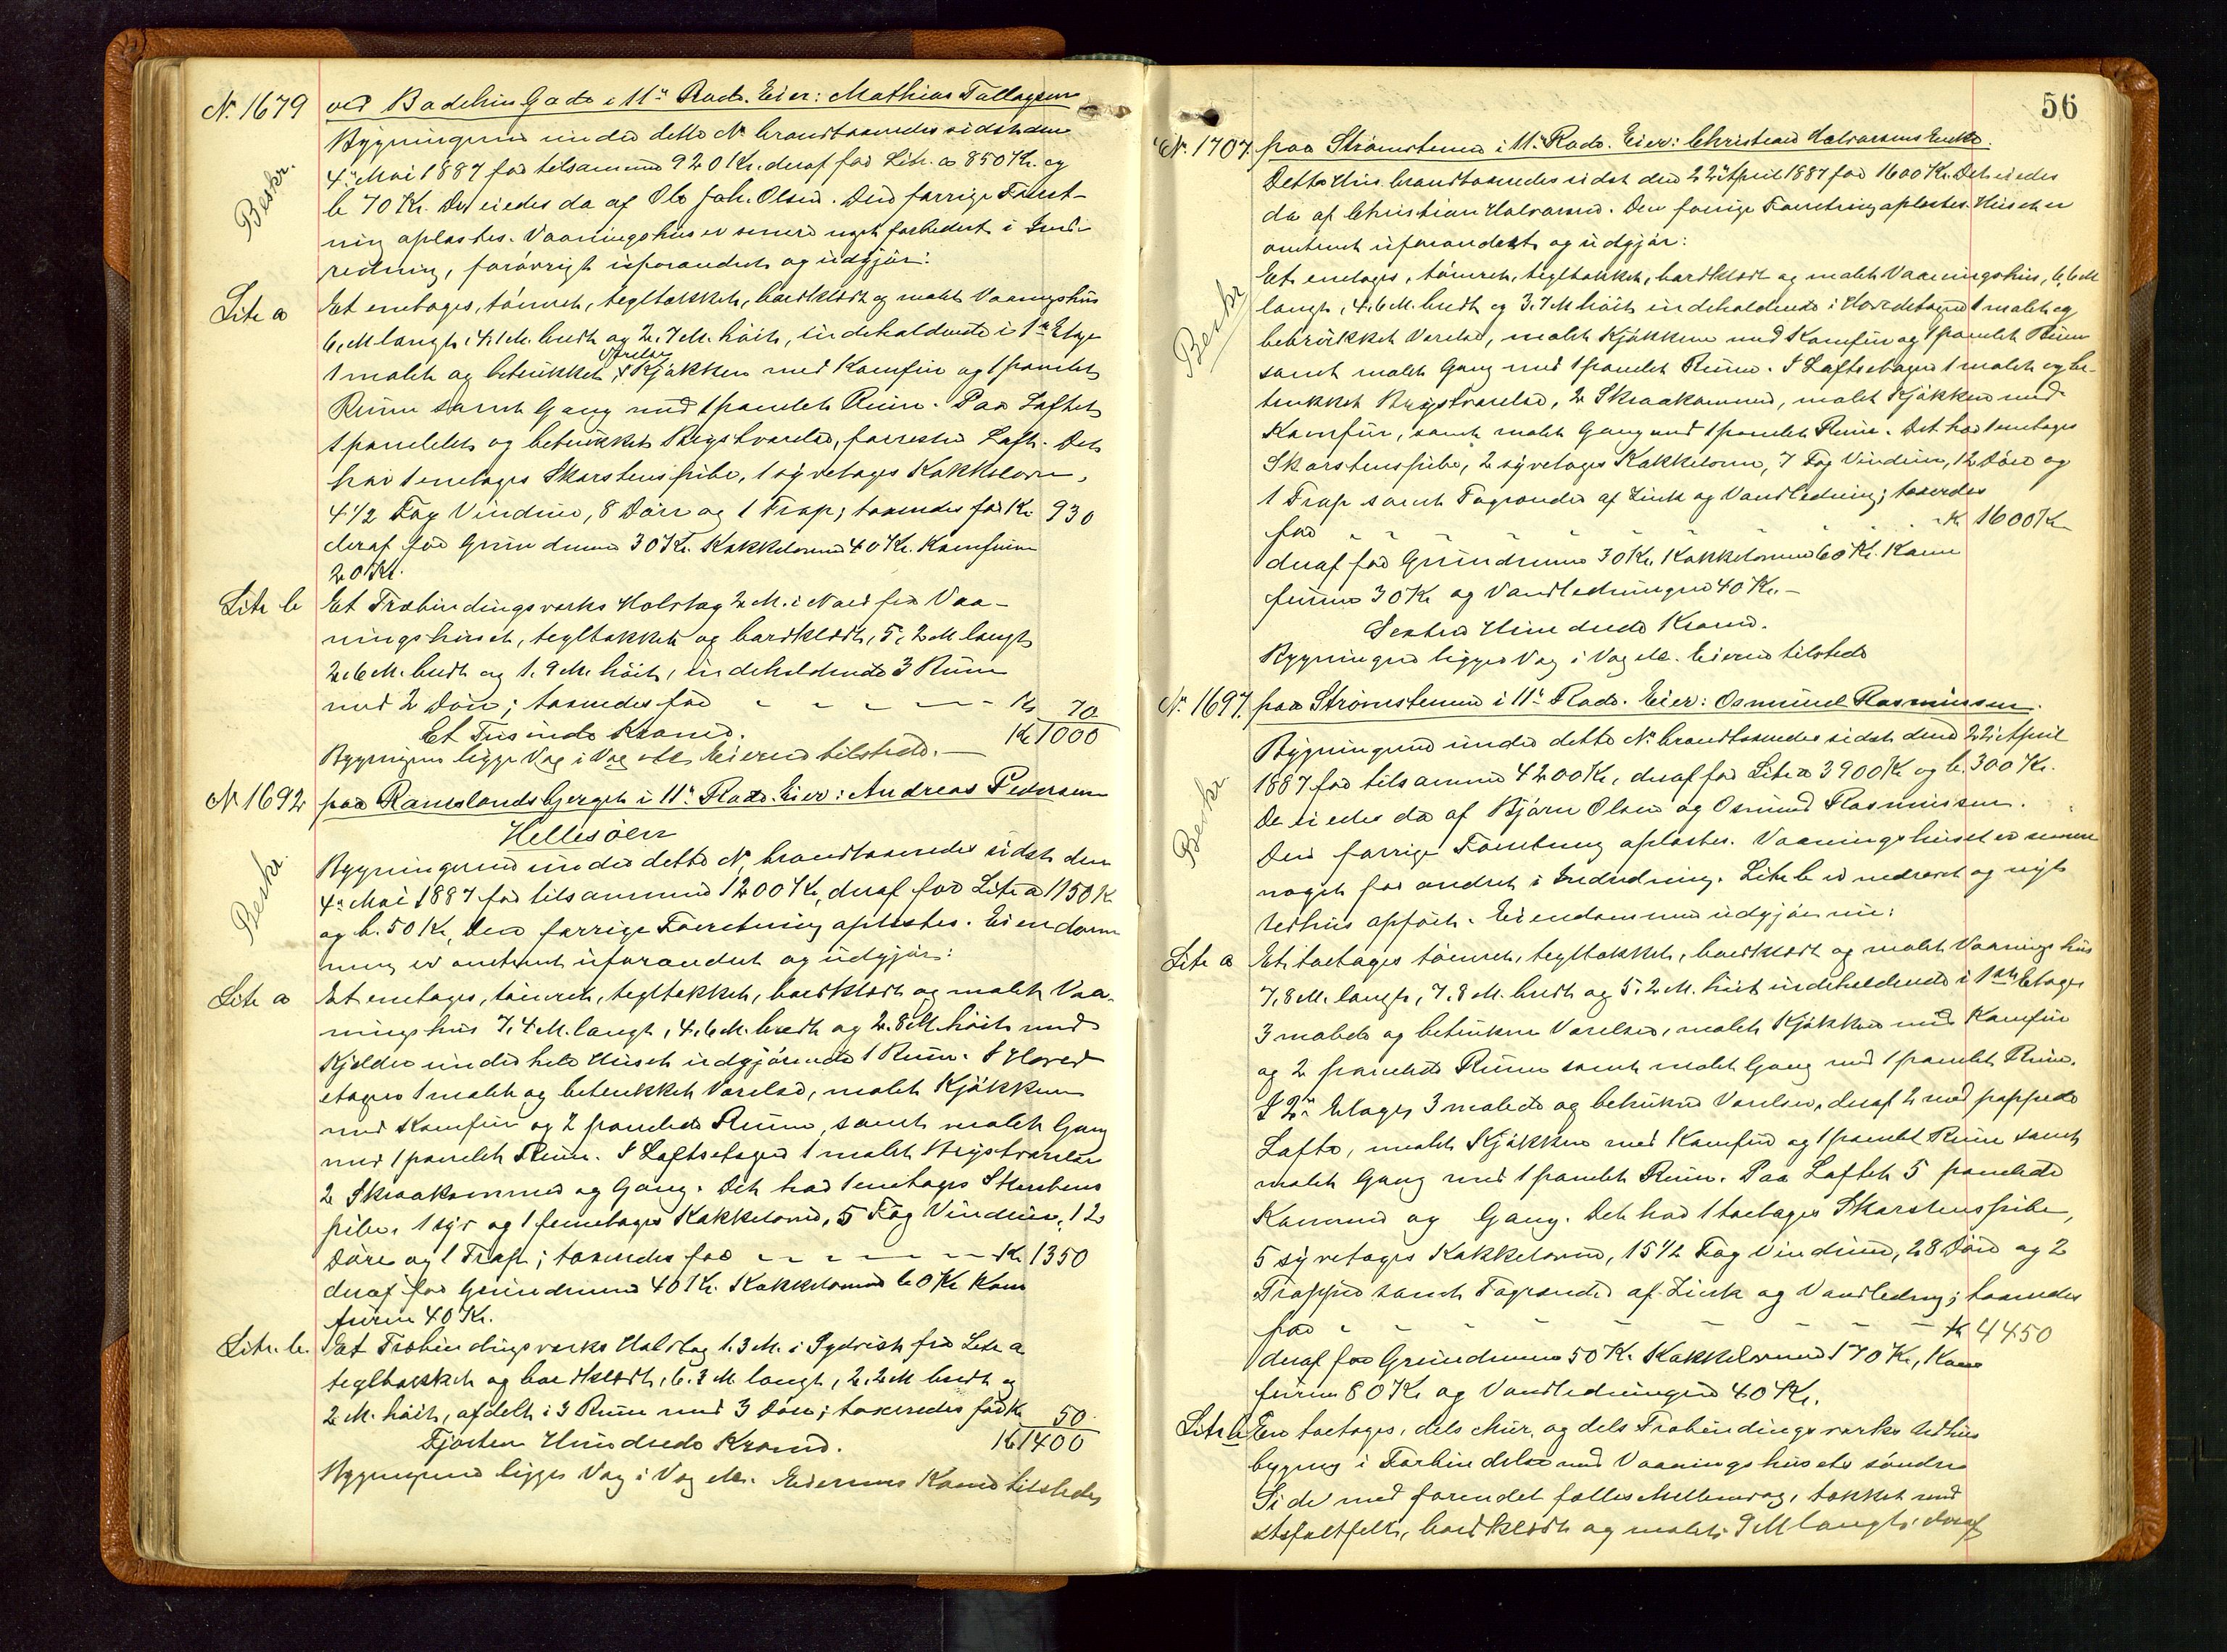 No. 1679 ved Badehus Gade i 11te Rode. Eier: Mathias Tallaksen
Beskr.
Bygningerne under dette No. brandtaxeredes sidst den
4de Mai 1887 for tilsammen 920 Kr. deraf for Litr. a 850 Kr. og
b 70 Kr. De eiedes da af Ole Joh. Olsen. Den forrige Forret-
ning oplæstes. Vaaningshuset er senere noget forbedret i Ind-
redning, forøvrigt uforandret og udgjør:
Litr a Et enetages, tømret, tegltækket, bordklædt og malet Vaaningshus
6, M langt, 4,1 M. bredt og 2,7 M. høit, indeholdende i 1ste Etage
1 malet og betrukket Værelse, Kjøkken med Komfur og 1 panelet
Rum samt Gang med 1 panelet Rum. Paa Loftet
1 panelet og betrukket Brystværelse, forresten Loft. Det
har 1 enetages Skorstenspibe, 1 syvetages Kakkelovn,
4 1/2 Fag Vinduer, 8 Døre og 1 Trap; taxeredes for Kr. 930
deraf for Grundmuren 30 Kr. Kakkelovnen 40 Kr. Komfuren
20 Kr.
Litr b Et Træbindingsværks Halvtag 2 M. i Nord fra Vaa-
ningshuset, tegltækket og bordklædt, 5,2 M langt
2,6 M. bredt og 1,9 M. høit, indeholdende 3 Rum
med 2 Døre; taxeredes for - - - - - Kr 70
Et Tusinde Kroner. Kr 1000
Bygningerne ligge Væg i Væg etc. Eieren tilstede.
No 1692 paa Ramslandsbjerget i 11te Rode. Eier: Andreas Pedersen
Hellesøen
Beskr.
Bygningerne under dette No. brandtaxeredes sidst den
4de Mai 1887 for tilsammen 1200 Kr, deraf for Litr a 1150 Kr
og b. 50 Kr, Den forrige Forretning oplæstes. Eiendom-
men er omtrent uforandret og udgjør:
Litr a Et enetages, tømret, tegltækket, bordklædt og malet Vaa-
ningshus 7,4 M. langt, 4,6 M. bredt og 2,8 M. høit med
Kjelder under hele Huset udgjørende 1 Rum. I Hoved
etagen 1 malet og betrukket Værelse, malet Kjøkken
med Komfur og 2 panelede Rum, samt malet Gang
med 1 panelet Rum. I Loftsetagen 1 malet Brystværelse
2 Skraakammer og Gang. Det har 1 enetages Skorstens
pibe, 1 syv og 1 femetages Kakkelovne, 5 Fag Vinduer, 12
Døre og 1 Trap; taxeredes for - - - - - Kr 1350
deraf for Grundmuren 40 Kr. Kakkelovnene 60 Kr Kom
furen 40 Kr.
Litr. b. Et Træbindingsværks Halvtag 1,3 M. i Sydvest fra Litr a
tegltækket og bordklædt, 6,3 M langt, 2,2 M bredt og
2 M. høit, afdelt i 3 Rum med 3 Døre; taxeredes for Kr 50
Fjorten Hundrede Kroner. Kr 1400
Bygningerne ligge Væg i Væg etc. Eierens Kone tilstede
56
No. 1707. paa Strømstenen i 11te Rode. Eier: Christian Halvorsens Enke.
Beskr
Dette Hus brandtaxeredes sidst den 22de April 1887 for 1600 Kr. Det eiedes
da af Christian Halvorsen. Den forrige Forretning oplæstes. Huset er
omtrent uforandret og udgjør:
Et enetages, tømret, tegltækket, bordklædt og malet Vaaningshus, 6,6 M
langt, 4,6 M. bredt og 3,7 M høit indeholdende i Hovedetagen 1 malet og
betrukket Værelse, malet Kjøkken med Komfur og 1 panelet Rum
samt malet Gang med 1 panelet Rum. I Loftsetagen 1 malet og be-
trukket Brystværelse, 2 Skraakammer, malet Kjøkken med
Komfur, samt malet Gang med 1 panelet Rum. Det har 1 enetages
Skorstenspibe, 2 syvetages Kakkelovne, 7 Fag Vinduer, 12 Døre og
1 Trap samt Tagrender af Zink og Vandledning; taxeredes
for - - - - - - - Kr 1600 Kr
deraf for Grundmuren 30 Kr. Kakkelovnene 60 Kr. Kom
furene 30 Kr og Vandledningen 40 Kr. -
Sexten Hundrede Kroner.
Bygningen ligger Væg i Væg etc. Eieren tilstede
No. 1697. paa Strømstenen i 11te Rode. Eier: Osmund Rasmussen.
Beskr.
Bygningerne under dette No. brandtaxeredes sidst den 22de April
1887 for tilsammen 4200 Kr, deraf for Litr a 3900 Kr og b. 300 Kr.
De eiedes da af Bjørn Olsen og Osmund Rasmussen.
Den forrige Forretning oplæstes. Vaaningshuset er senere
noget forandret i Indredning. Litr b er nedrevet og nyt
Udhus opført. Eiendommen udgjør nu:
Litr a Et toetages tømret, tegltækket, bordklædt og malet Vaaningshus
7,8 M. langt, 7,8 M. bredt og 5,2 M. høit indeholdende i 1ste Etage
3 malede og betrukne Værelser, malet Kjøkken med Komfur
og 2 panelede Rum samt malet Gang med 1 panelet Rum.
I 2den Etage 3 malede og betrukne Værelser, deraf 2 med pappede
Lofte, malet Kjøkken med Komfur og 1 panelet Rum samt
malet Gang med 1 panelet Rum. Paa Loftet 5 panelede
Kammer og Gang. Det har 1 toetages Skorstenspibe,
5 syvetages Kakkelovne, 15 1/2 Fag Vinduer, 28 Døre og 2
Trapper samt Tagrender af Zink og Vandledning; taxeredes
for - - - - - - - - - Kr 4450
deraf for Grundmuren 50 Kr. Kakkelovnene 170 Kr, Kom
furene 80 Kr og Vandledningen 40 Kr.
Litr b En toetages, dels Mur, og dels Træbindingsværks Udhus
bygning i Forbindelse med Vaaningshusets søndre
Side med forenet fælles Mellemvæg, tækket med
Asfaltfelt, bordklædt og malet. 9 M langt, deraf